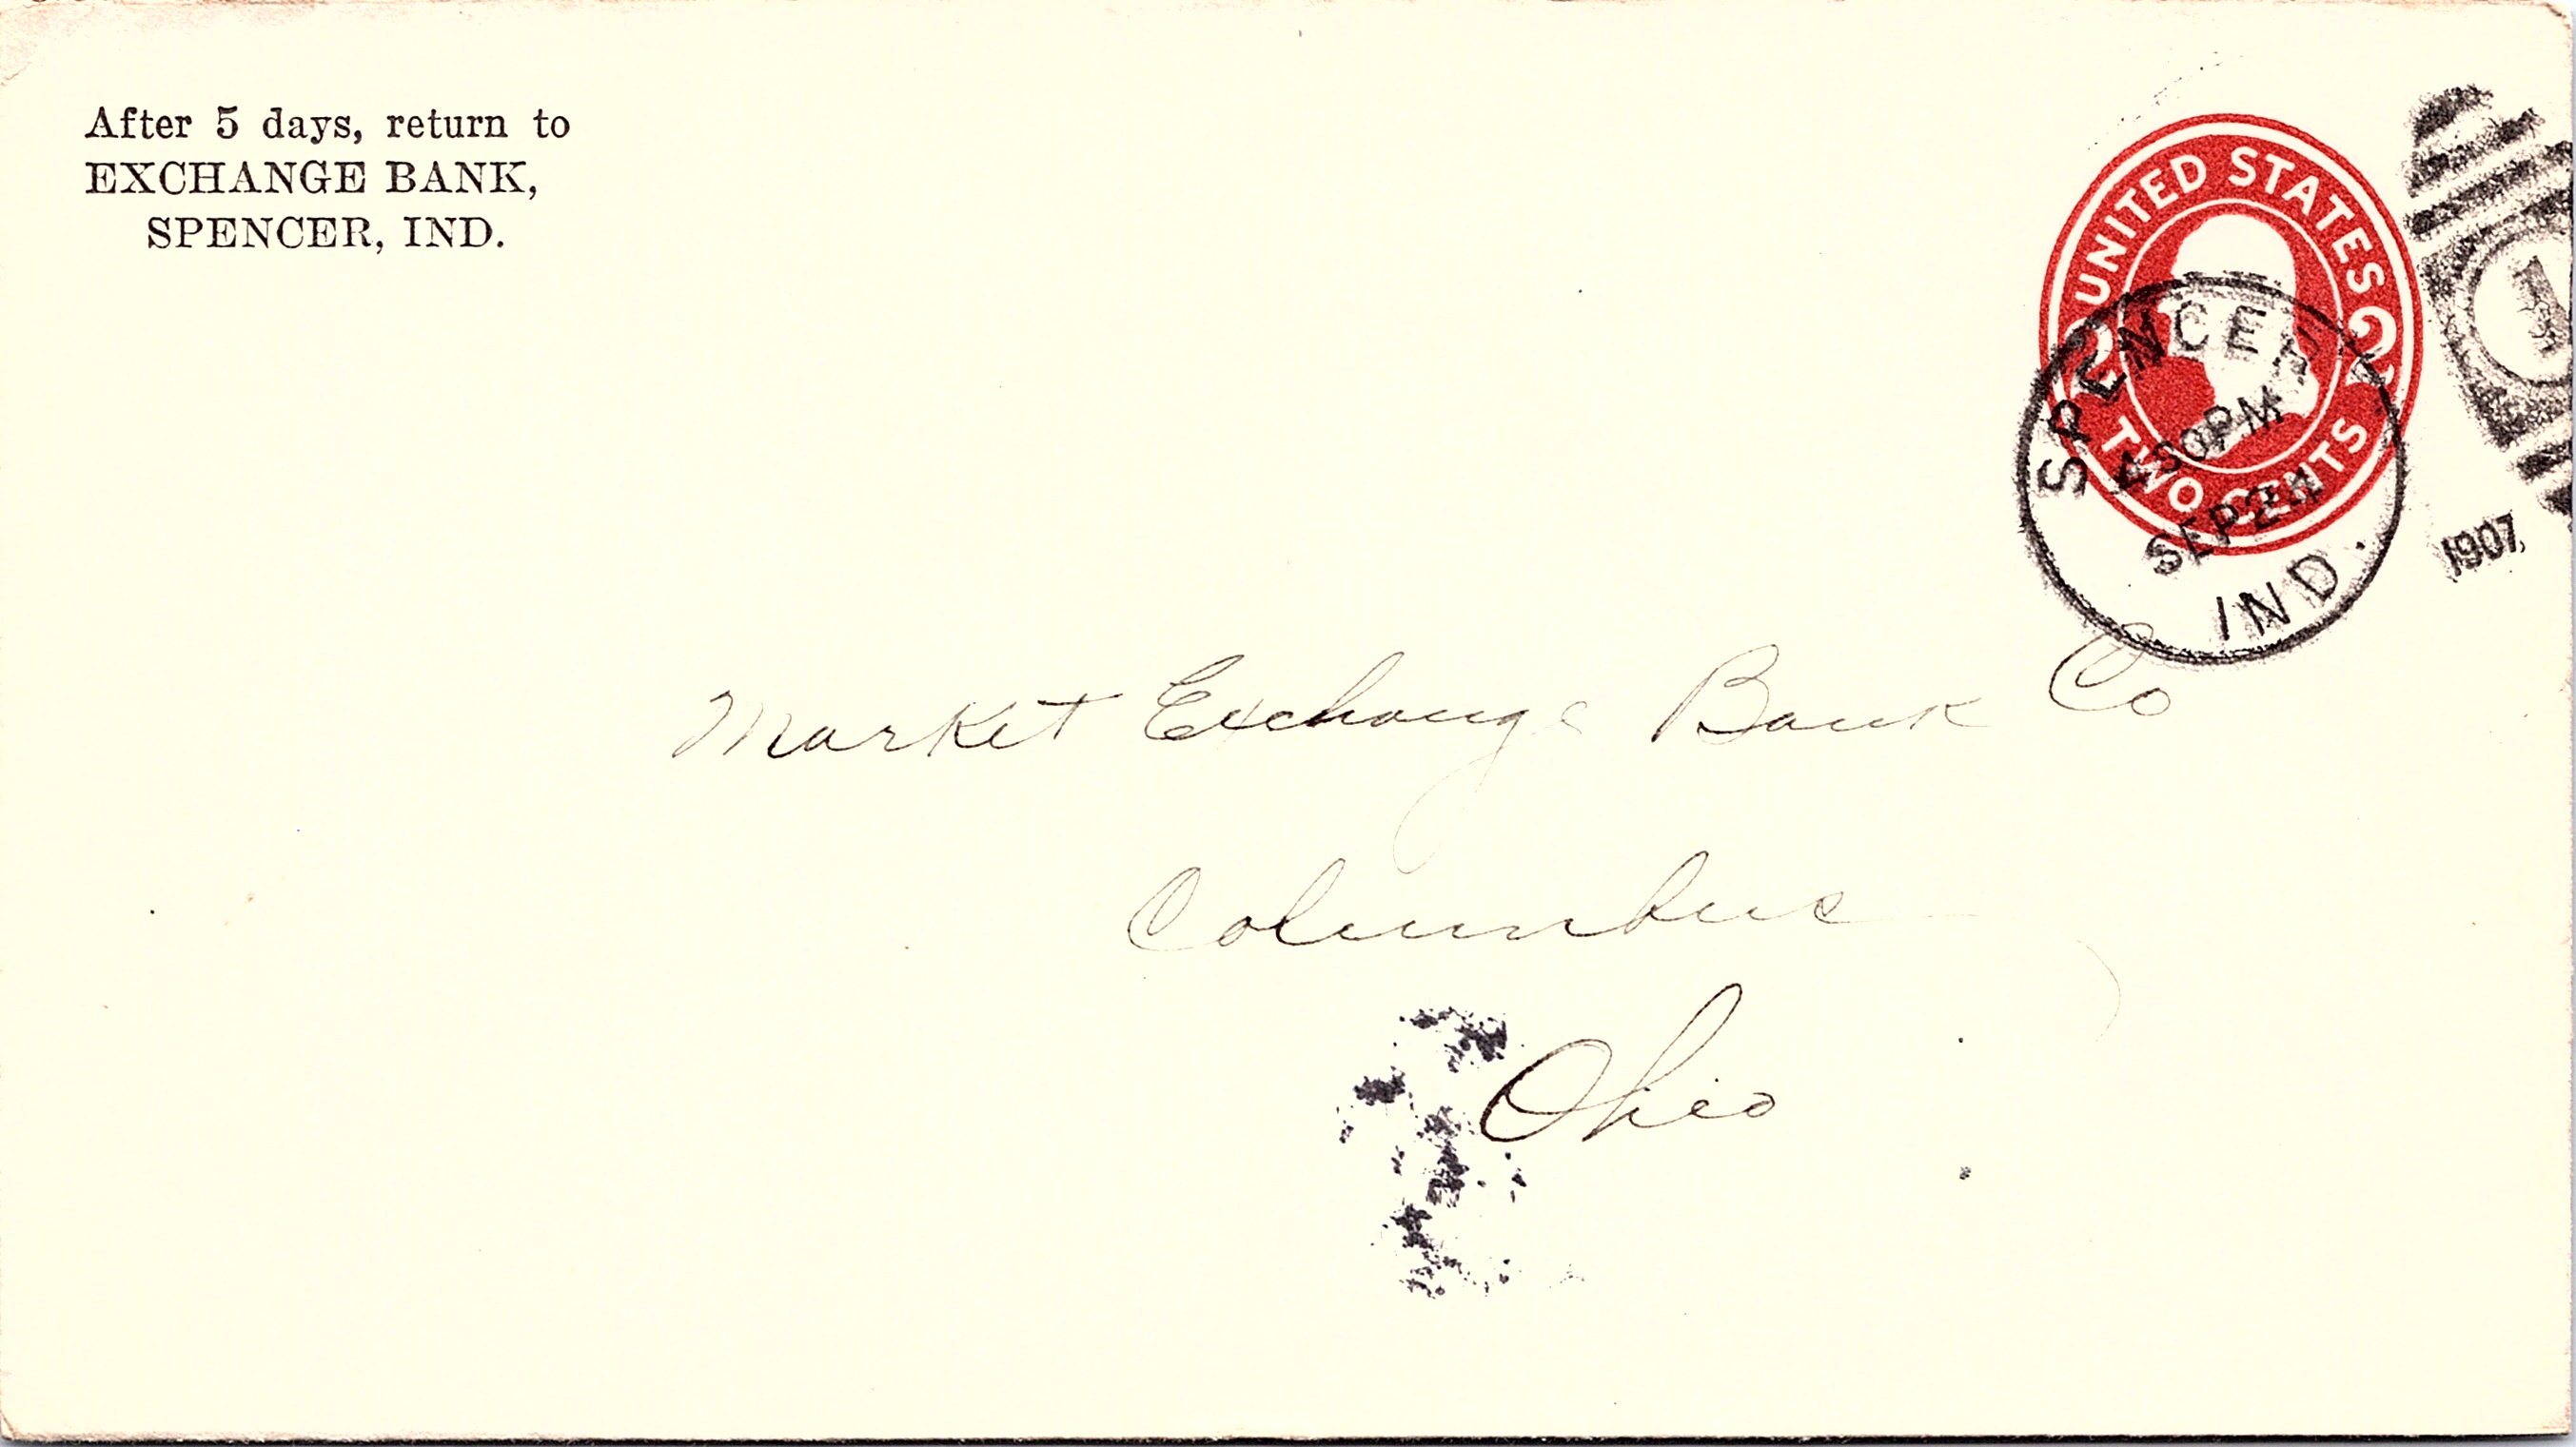 After 5 days, return to
EXCHANGE BANK,
SPENCER, IND.
UNITED STATES
2 2
TWO CENTS
SPENCER
430PM
SEP 24
IND.
1907
1
Market Exchange Bank Co
Columbus
Ohio